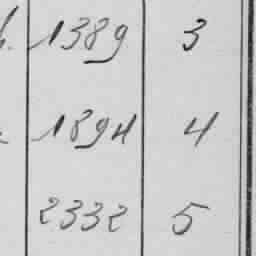 1389 3
1894 4
2332 5